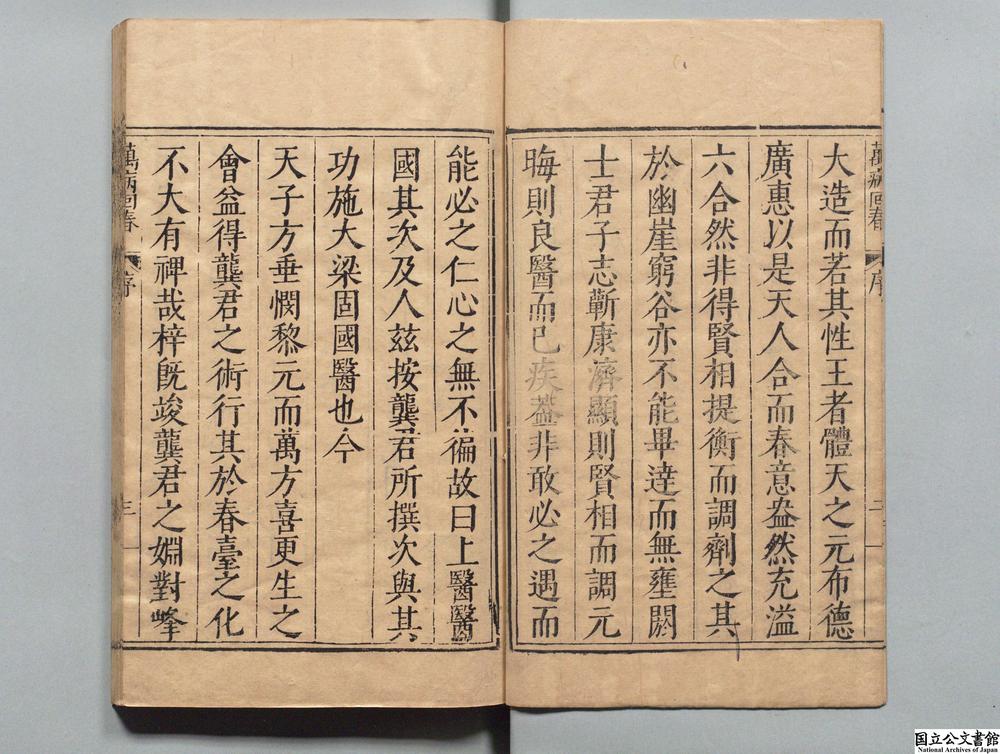 萬病回春 序 二
大造而若其性王者體天之元布德
廣惠以是天人合而春意盎然充溢
六合然非得賢相提衡而調劑之其
於幽崖窮谷亦不能畢達而無壅閼
士君子志蘄康濟顯則賢相而調元
晦則良醫而已疾蓋非敢必之遇而
能必之仁心之無不徧故曰上醫醫
國其次及人茲按龔君所撰次與其
功施大梁固國醫也今
天子方垂憫黎元而萬方喜更生之
會益得龔君之術行其於春臺之化
不大有裨哉梓旣竣龔君之姻對峰
萬病回春 序 三
国立公文書館
National Archives of Japan